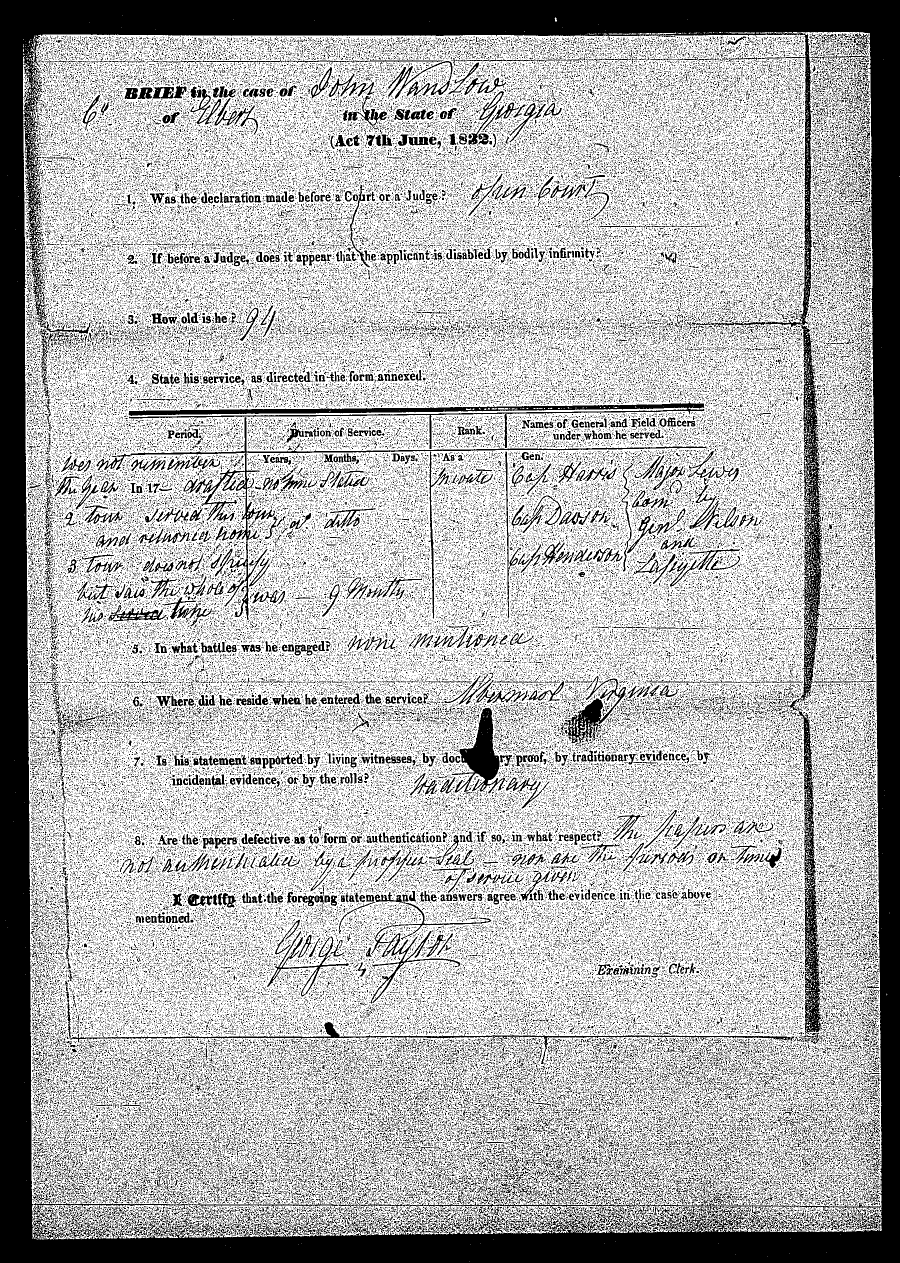 BRIEF in the case of John Wanslow
Co of Elbert in the State of Georgia
(Act 7th June, 1832.)
1. Was the declaration made before a Court or a Judge? open Court
2. If before a Judge, does it appear that the applicant is disabled by bodily infirmity?
3. How old is he? 94
4. State his service, as directed in the form annexed.
Period. Duration of Service. Rank. Names of General and Field Officers under whom he served.
Years, Months, Days. As a Gen.
does not remember
the year In 17— drafted no time stated Private Cap. Harris Major Lewis
2 tour served this tour ditto Cap Dawson Comd by
and returned home Genl Wilson
and
3 tour does not specify Cap Henderson Lafayette
but said the whole of
his served time was — 9 Months
5. In what battles was he engaged? none mentioned
6. Where did he reside when he entered the service? Albermarl Virginia
7. Is his statement supported by living witnesses, by doc ry proof, by traditionary evidence, by
incidental evidence, or by the rolls? traditionary
8. Are the papers defective as to form or authentication? and if so, in what respect? The papers are
not authenticated by a propper Seal — nor are the periods or times
of service given
I Certify that the foregoing statement and the answers agree with the evidence in the case above
mentioned.
George Taylor
Examining Clerk.